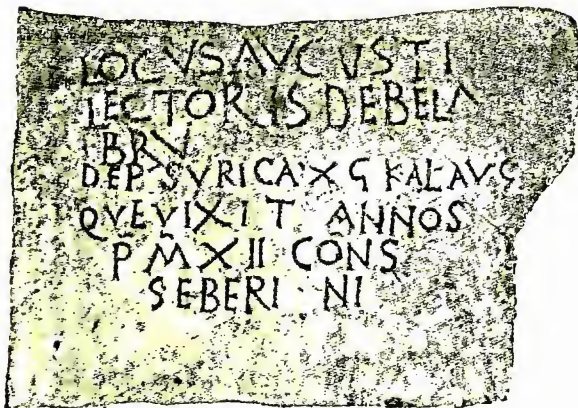 LOCVSAVCVSTI
LECTORISDEBELA
BRV
DEP SVRICA X G KAL AVG
QVEVIXIT ANNOS
P M XII CONS
SEBERI NI